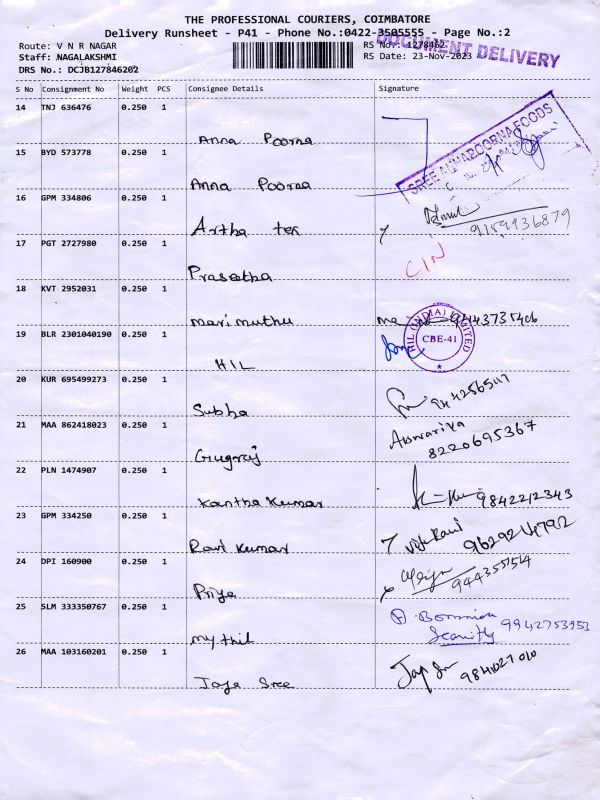 THE PROFESSIONAL COURIERS, COIMBATORE
Delivery Runsheet - P41 - Phone No.:0422-3505555 - Page No.:2
Route: V N R NAGAR
RS No.: 1278462
DOCUMENT DELIVERY
Staff: NAGALAKSHMI
RS Date: 23-Nov-2023
DRS No.: DCJB127846202
S No Consignment No Weight PCS Consignee Details Signature
14 TNJ 636476 0.250 1
Anna Poorna
SREE ANNAPOORNA FOODS
15 BYD 573778 0.250 1
Anna Poorna
16 GPM 334806 0.250 1
Artha tex
9159936879
17 PGT 2727980 0.250 1
Prasatha
CIN
18 KVT 2952031 0.250 1
marimuthu
9443735406
19 BLR 2301040190 0.250 1
HIL
HIL (INDIA) LIMITED
CBE-41
20 KUR 695499273 0.250 1
Subha
21 MAA 862418023 0.250 1
Aiswariya
8220695367
22 PLN 1474907 0.250 1
Kantha Kumar
9842212343
23 GPM 334250 0.250 1
Ravi Kumar
9629214792
24 DPI 160900 0.250 1
Priya
25 SLM 333350767 0.250 1
mythil
9942753953
26 MAA 103160201 0.250 1
Jaya Sree
9841027010